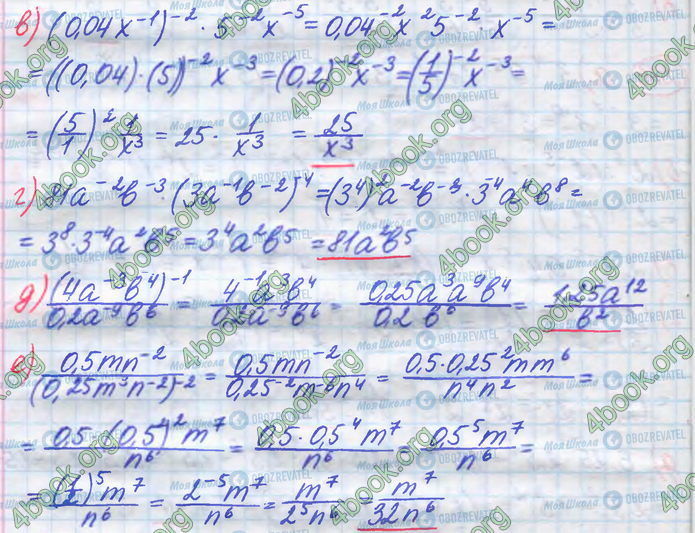 в) (0,04x⁻¹)⁻² · 5⁻²x⁻⁵ = 0,04⁻²x²5⁻² x⁻⁵ =
= ((0,04)·(5))⁻² x⁻³ = (0,2)⁻²x⁻³ = (1/5)⁻² x⁻³ =
= (5/1)² 1/x³ = 25 · 1/x³ = 25/x³
г) 81a⁻²b⁻³ · (3a⁻¹b⁻²)⁻⁴ = (3⁴) a⁻²b⁻³ · 3⁻⁴a⁴b⁸ =
= 3⁸·3⁻⁴a²b⁵ = 3⁴a²b⁵ = 81a²b⁵
д) (4a⁻³b⁻⁴)⁻¹ / 0,2a⁻⁹b⁶ = 4⁻¹a³b⁴ / 0,2a⁻⁹b⁶ = 0,25a³a⁹b⁴ / 0,2 b⁶ = 1,25a¹² / b²
е) 0,5mn⁻² / (0,25m³n⁻²)⁻² = 0,5mn⁻² / 0,25⁻²m⁻⁶n⁴ = 0,5·0,25²mm⁶ / n⁴n² =
= 0,5·(0,5²)² m⁷ / n⁶ = 0,5·0,5⁴m⁷ / n⁶ = 0,5⁵m⁷ / n⁶ =
= (1/2)⁵m⁷ / n⁶ = 2⁻⁵m⁷ / n⁶ = m⁷ / 2⁵n⁶ = m⁷ / 32n⁶
4book.org
МояШкола
OBOZREVATEL